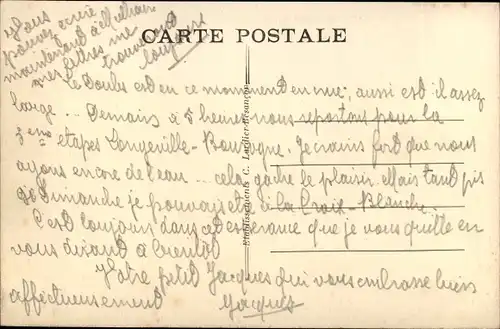 Vous
pouvez écrire
maintenant à Mulhouse
mes lettres me
trouveront
toujours
CARTE POSTALE
Le Doubs est en ce moment en crue, aussi est il assez
large... Demain à 5 heures nous repartons pour la
3eme étape Longeville-Bourogne. Je crains fort que nous
ayons encore de l'eau... cela gâche le plaisir. Mais tant pis
si dimanche je pouvais être à la Croix-Blanche.
C'est toujours dans cet espérance que je vous quitte en
vous disant à bientôt
Votre petit Jacques qui vous embrasse bien
affectueusement
Jacques
Etablissements C. Lardier-Besançon